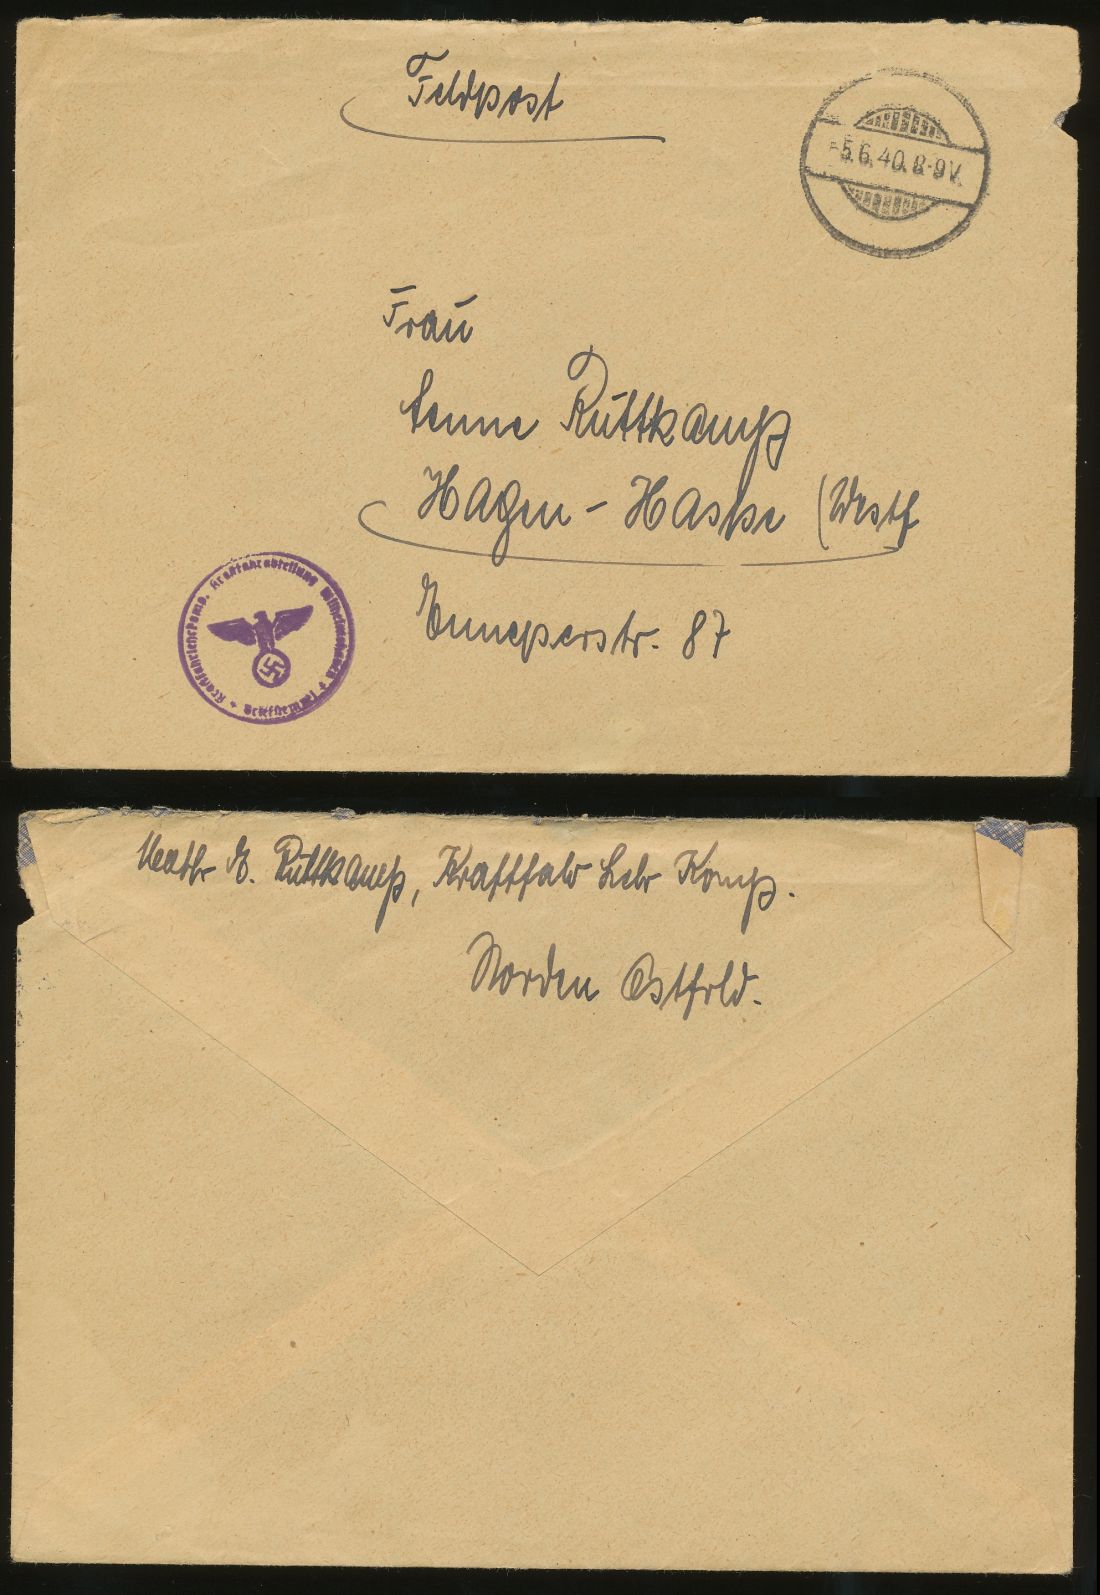 Feldpost
-5.6.40.8-9V.
Frau
Ruttkamp
Hagen - Haspe (Westf
Enneperstr. 87
+ Kraftfahrlehrkomp. Kraftfahrabteilung Wilhelmshaven + Briefstempel
Matr E. Ruttkamp, Kraftfahr Lehr Komp.
Norden Ostfrld.